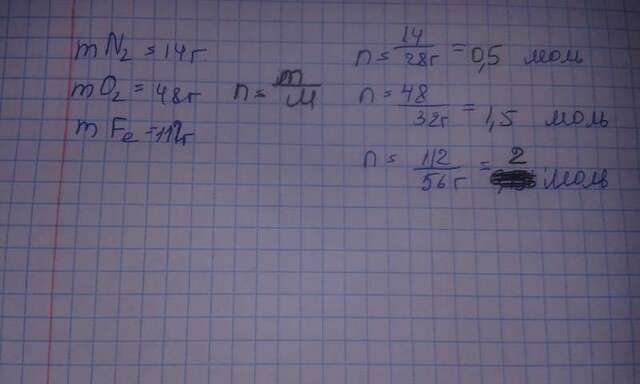 m N₂ = 14г
m O₂ = 48г
m Fe = 112г
n = m/M
n = 14/28г = 0,5 моль
n = 48/32г = 1,5 моль
n = 112/56г = 2 моль